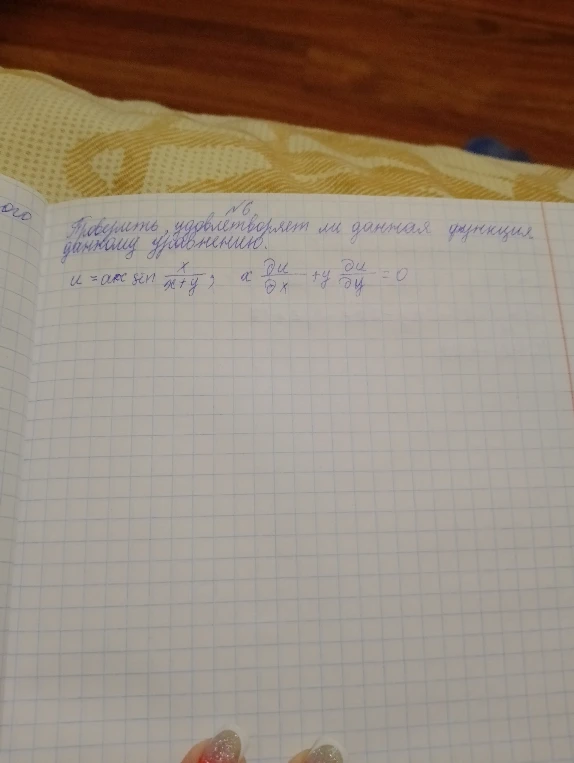 ого
№6.
Проверить, удовлетворяет ли данная функция
данному уравнению.
u = arc sin x/(x+y); x ∂u/∂x + y ∂u/∂y = 0